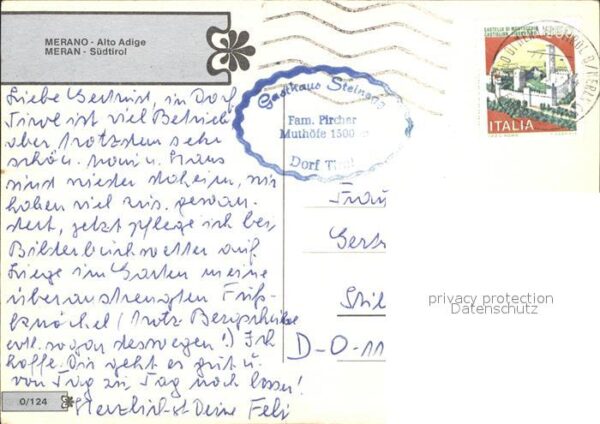 MERANO - Alto Adige
MERAN - Südtirol
Liebe Gertrud, in Dorf
Tirol ist viel Betrieb
aber trotzdem sehr
schön. u. Hans
sind wieder daheim, wir
haben viel zus. gewan-
dert, jetzt pflege ich bei
Bilderbuchwetter auf
Liege im Garten meine
überanstrengten Fuß-
knöchel (trotz Bergschuhe
evtl. sogar deswegen!) Ich
hoffe Dir geht es gut u.
von Tag zu Tag noch besser!
Herzlichst Deine Feli
0/124
Gasthaus Steinegg
Fam. Pircher
Muthöfe 1500 m
Dorf Tirol
ITALIA
Frau
Gertr
D-O-11
privacy protection
Datenschutz